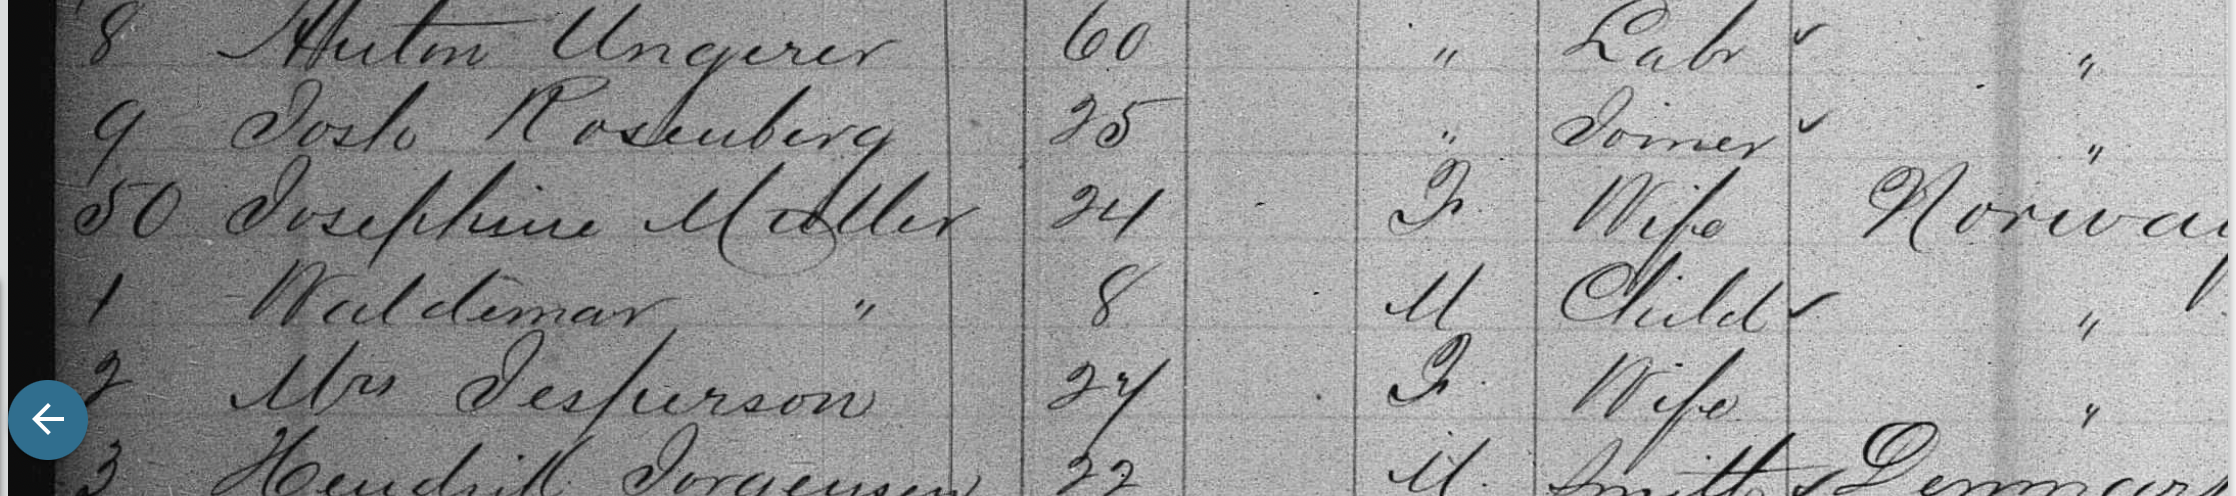 8 Anton Ungerer 60 " Labr "
9 Josh Rosenberg 25 " Joiner "
50 Josephine Muller 24 F. Wife Norway
1 Waldemar " 8 M Child "
2 Mrs Jesperson 27 F. Wife "
3 Hendrik Jorgensen 22 M. Smith Denmark